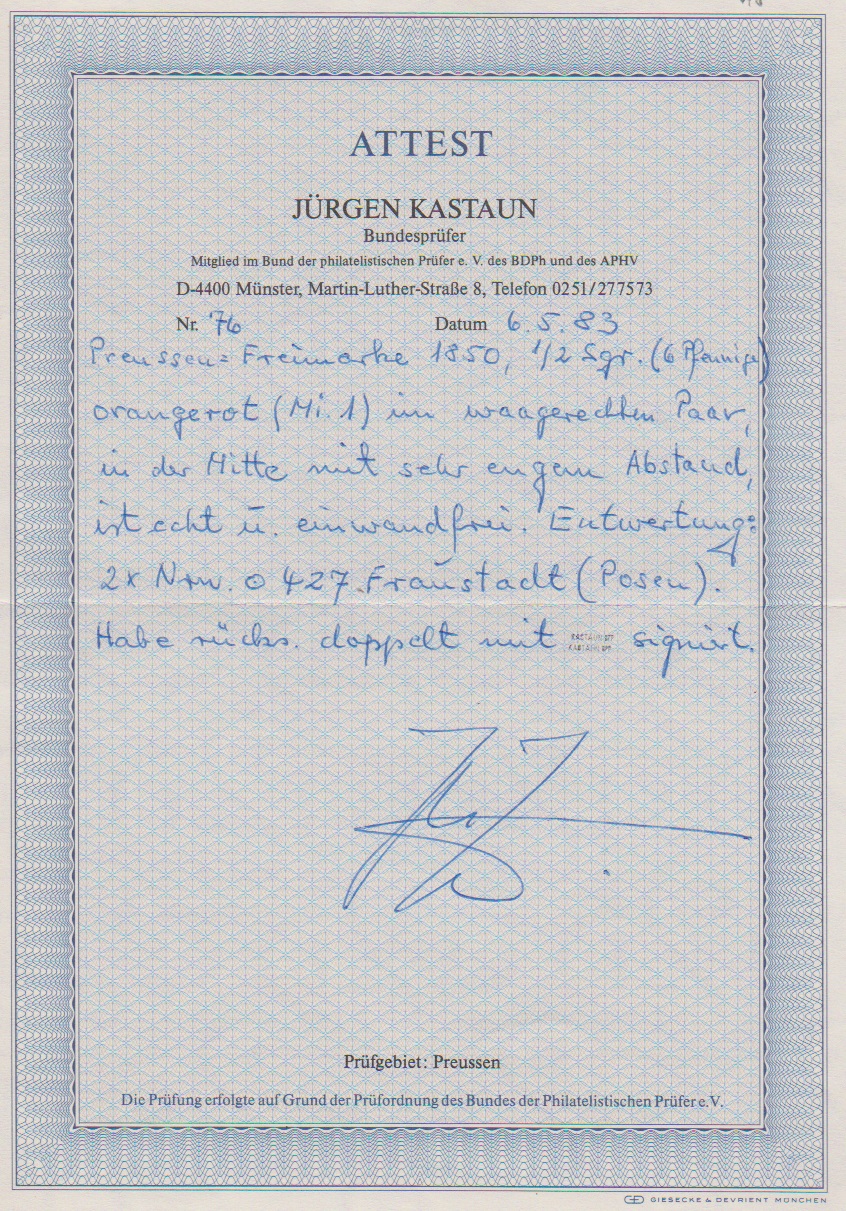 ATTEST
JÜRGEN KASTAUN
Bundesprüfer
Mitglied im Bund der philatelistischen Prüfer e. V. des BDPh und des APHV
D-4400 Münster, Martin-Luther-Straße 8, Telefon 0251/277573
Nr. 76 Datum 6.5.83
Preussen= Freimarke 1850, 1/2 Sgr. (6 Pfennige)
orangerot (Mi. 1) im waagerechten Paar,
in der Mitte mit sehr engem Abstand,
ist echt u. einwandfrei. Entwertung:
2x Nrn. ⊙ 427 Fraustadt (Posen).
Habe rücks. doppelt mit KASTAUN BPP signiert.
KASTAUN BPP
Prüfgebiet: Preussen
Die Prüfung erfolgte auf Grund der Prüfordnung des Bundes der Philatelistischen Prüfer e.V.
GIESECKE & DEVRIENT MÜNCHEN